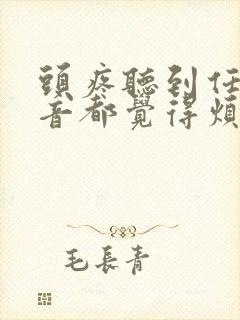 頭疼聽到任
音都覺得煩
毛長青